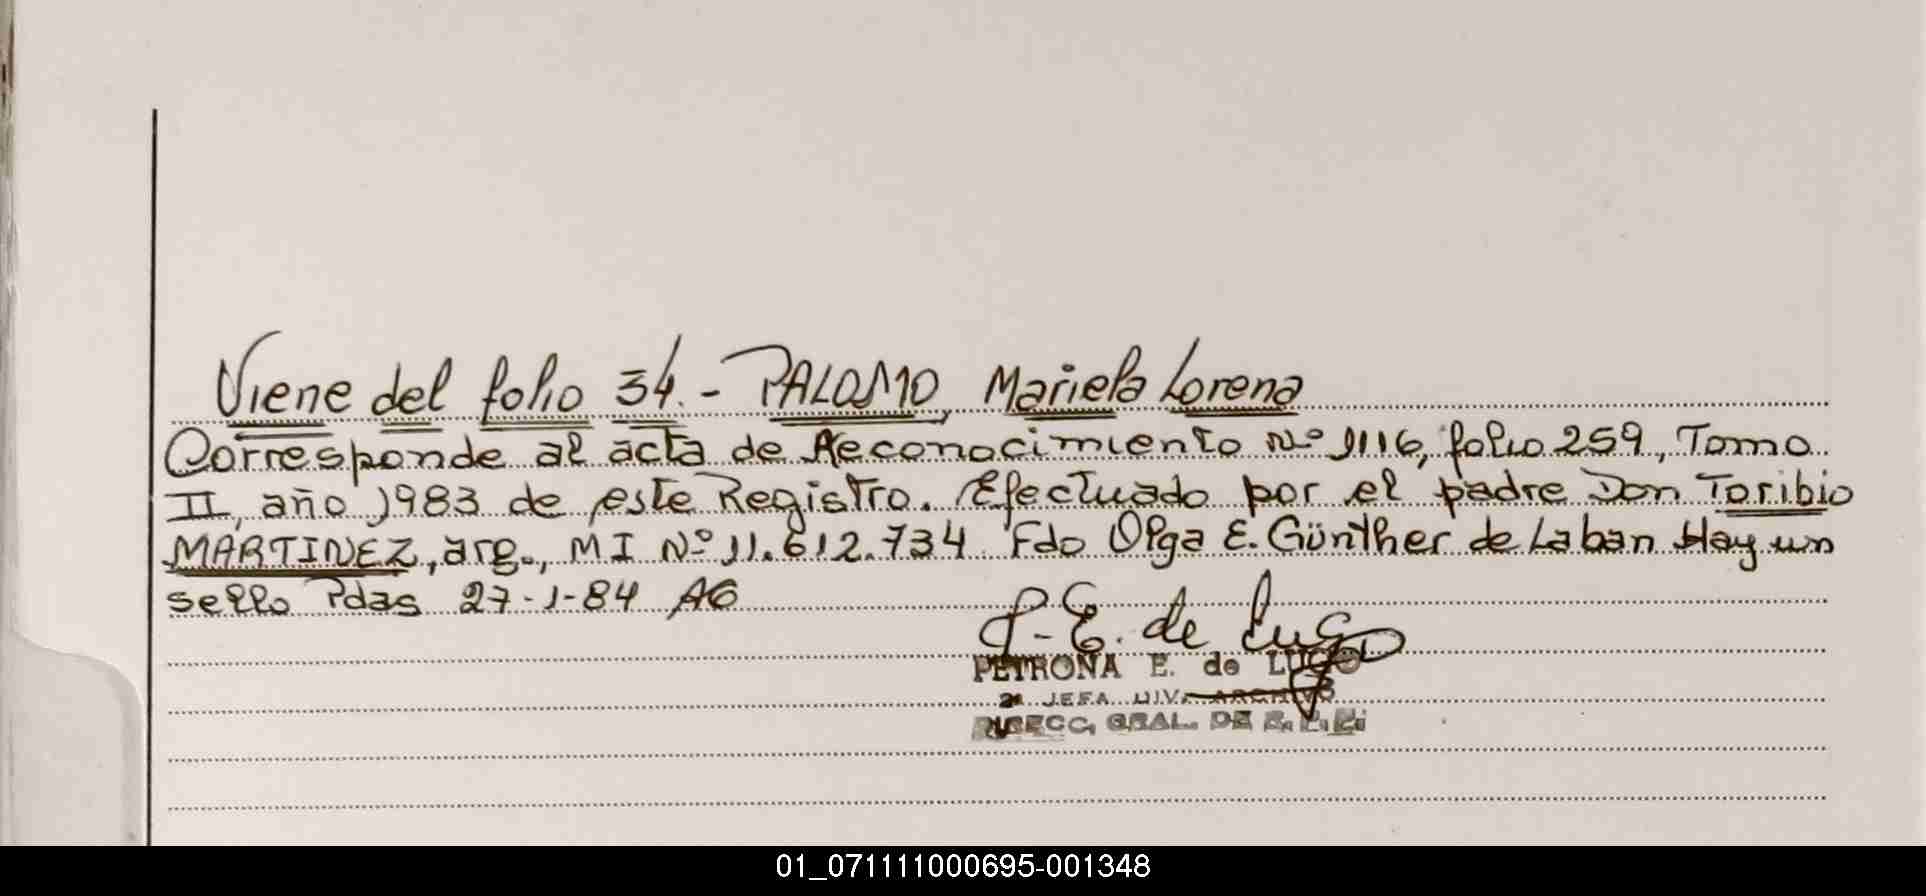 Viene del folio 34.- PALOMO, Mariela Lorena
Corresponde al acta de Reconocimiento Nº 1116, folio 259, Tomo
II, año 1983 de este Registro. Efectuado por el padre Don Toribio
MARTINEZ, arg., M I Nº 11.612.734 Fdo Olga E. Günther de Laban Hay un
sello Pdas 27-1-84 AG
P. E. de Lugo
PETRONA E. de LUGO
2ª JEFA DIV. ARCHIVO
DIRECC. GRAL. DE
01_071111000695-001348